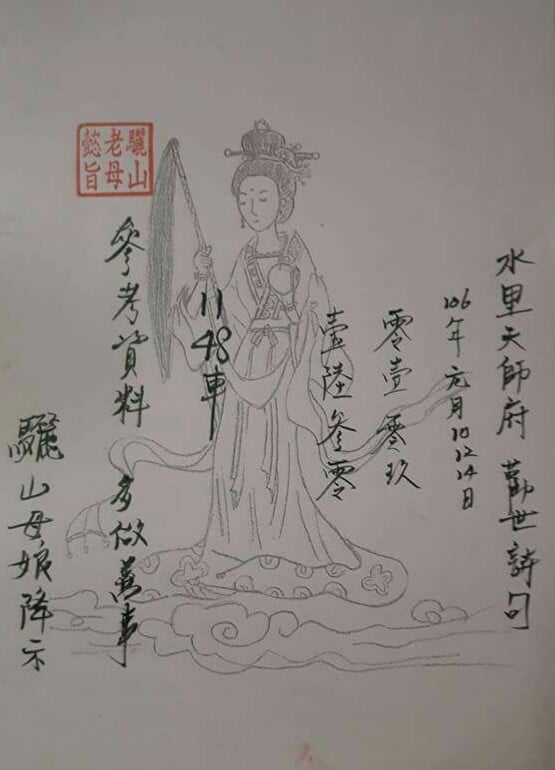 水里天師府 勸世詩句
106年元月10 12 14日
零壹 零玖
壹陸 參零
11 48車
參考資料 多做善事
驪山母娘降示
驪山
老母
懿旨